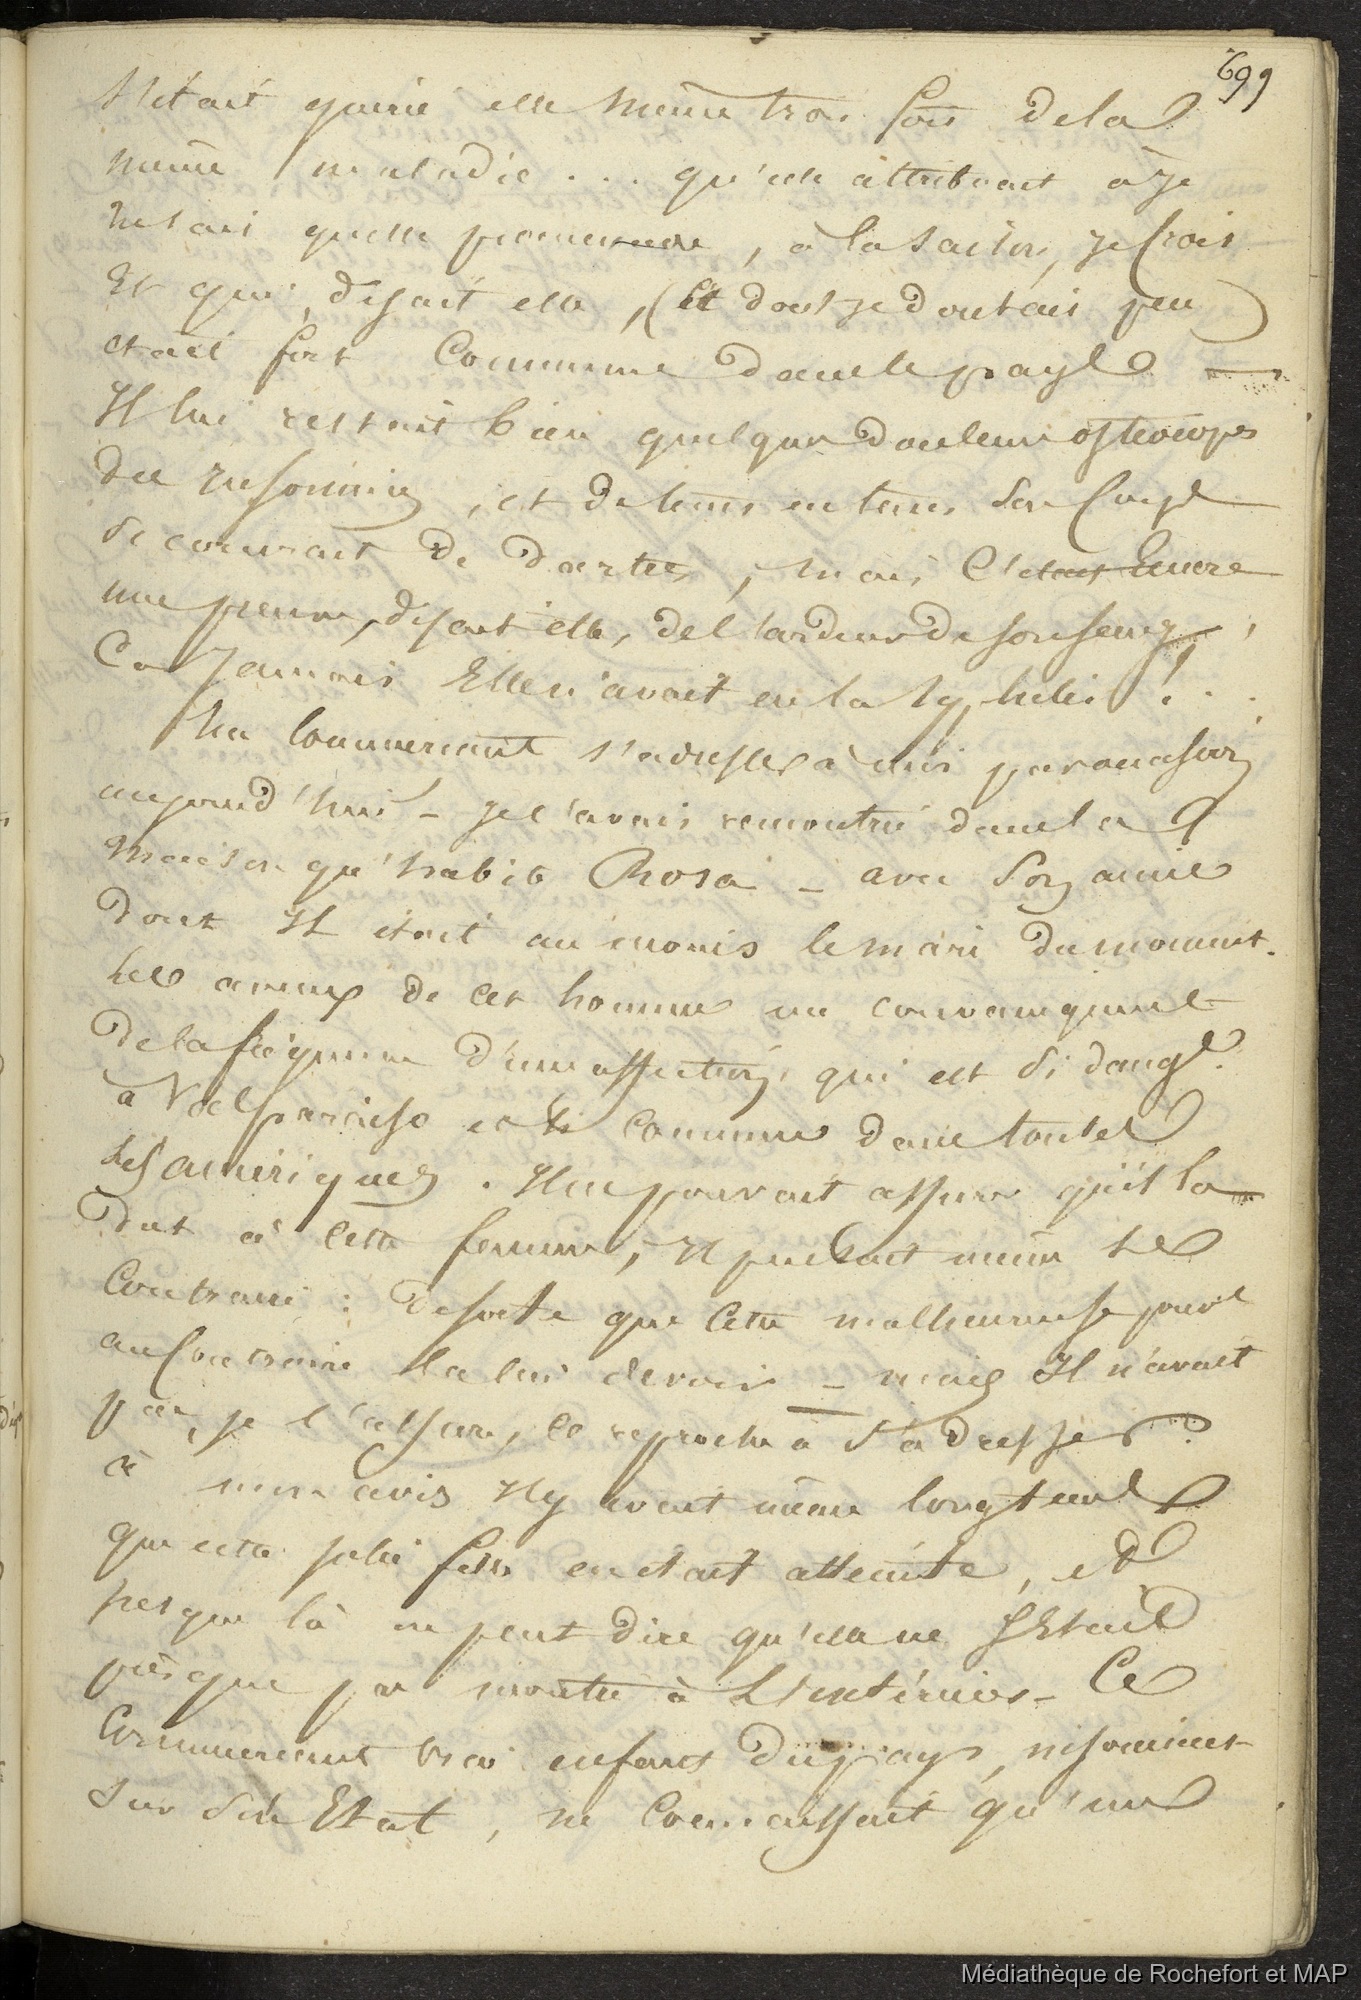 699
s'était guérie elle même trois fois de la
même maladie ... qu'elle attribuait à je
ne sais quelle , à la saison, je crois
Et qui, disait elle, (et dont je doutais peu)
était fort Commune dans le pays —
Il lui restait bien quelques douleurs ostéocopes
de tems en tems son Corps
se couvrait de dartres, mais c'était Encore
une preuve, disait elle, de l'ardeur de son sang,
Car Jamais Elle n'avait eu la syphilis ! ..
Un commercant s'adresse à moi par occasion
aujourd'hui – je l'avais rencontré dans la
maison qu'habite Rosa – avec son amie
dont Il était au moins le mari du moment.
Les aveux de cet homme me convainquirent
de la fréquence d'une affection, qui est si dangse.
à Valparaiso et si commune dans toutes
les amériques. Il ne pouvait assurer qu'il la
dut à cette femme, Il pensait même le
Contraire : de sorte que cette malheureuse pouvait
au Contraire la lui devoir – mais Il n'avait
pas, je l'assure, ce reproche à s'adresser.
à mon avis Il y avait même longtems
que cette jolie fille en était atteinte, et
jusque là on peut dire qu'elle ne s'Etait
presque pas montrée à L'extérieur – Ce
Commercant vrai enfant du pays, insouciant
sur son Etat, ne Connaissait qu'une
Médiathèque de Rochefort et MAP